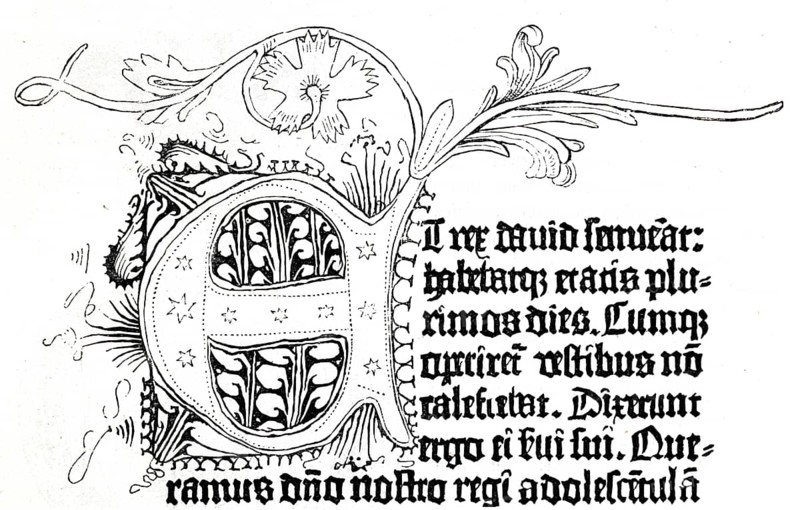 ET rex david senuĕat:
habebatqȝ etatis plu⸗
rimos dies. Cumqȝ
operiret᷑ vestibus nō
calefiebat. Dixerunt
ergo ei ẜui sui. Que⸗
ramus dn̄o nostro regi adolescētulā